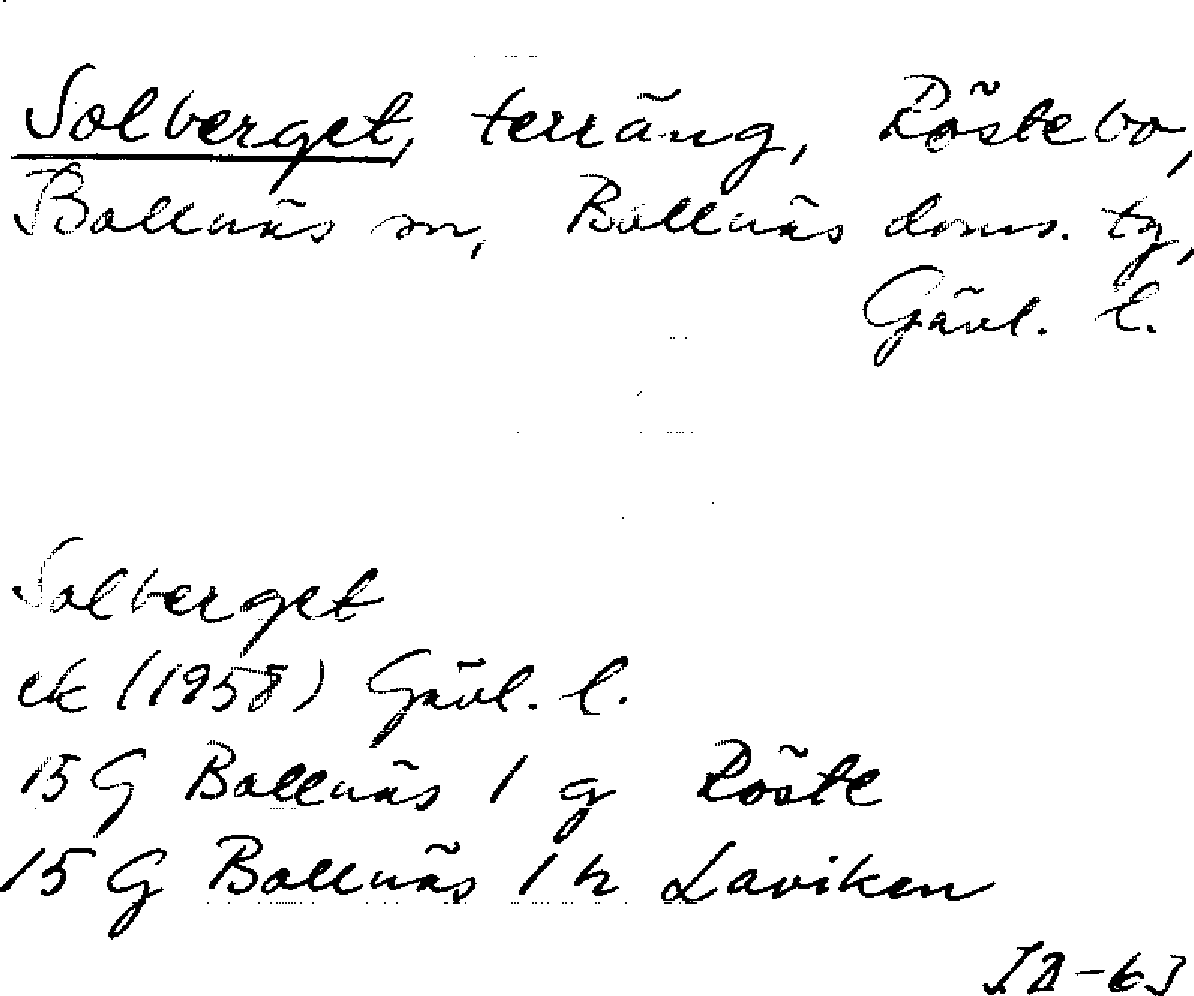 Solberget, terräng, Röstebo,
Bollnäs sn, Bollnäs doms. tg,
Gävl. l.
Solberget
ek (1958) Gävl. l.
15 G Bollnäs 1 g Röste
15 G Bollnäs 1 h Laviken